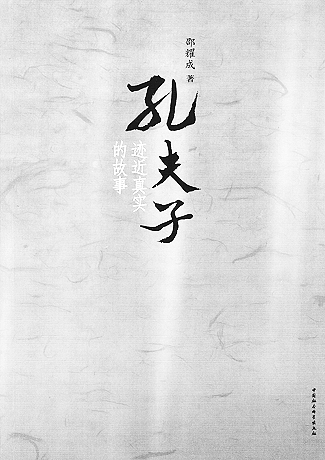 邵耀成 著
孔夫子
迹近真实
的故事
中国社会科学出版社